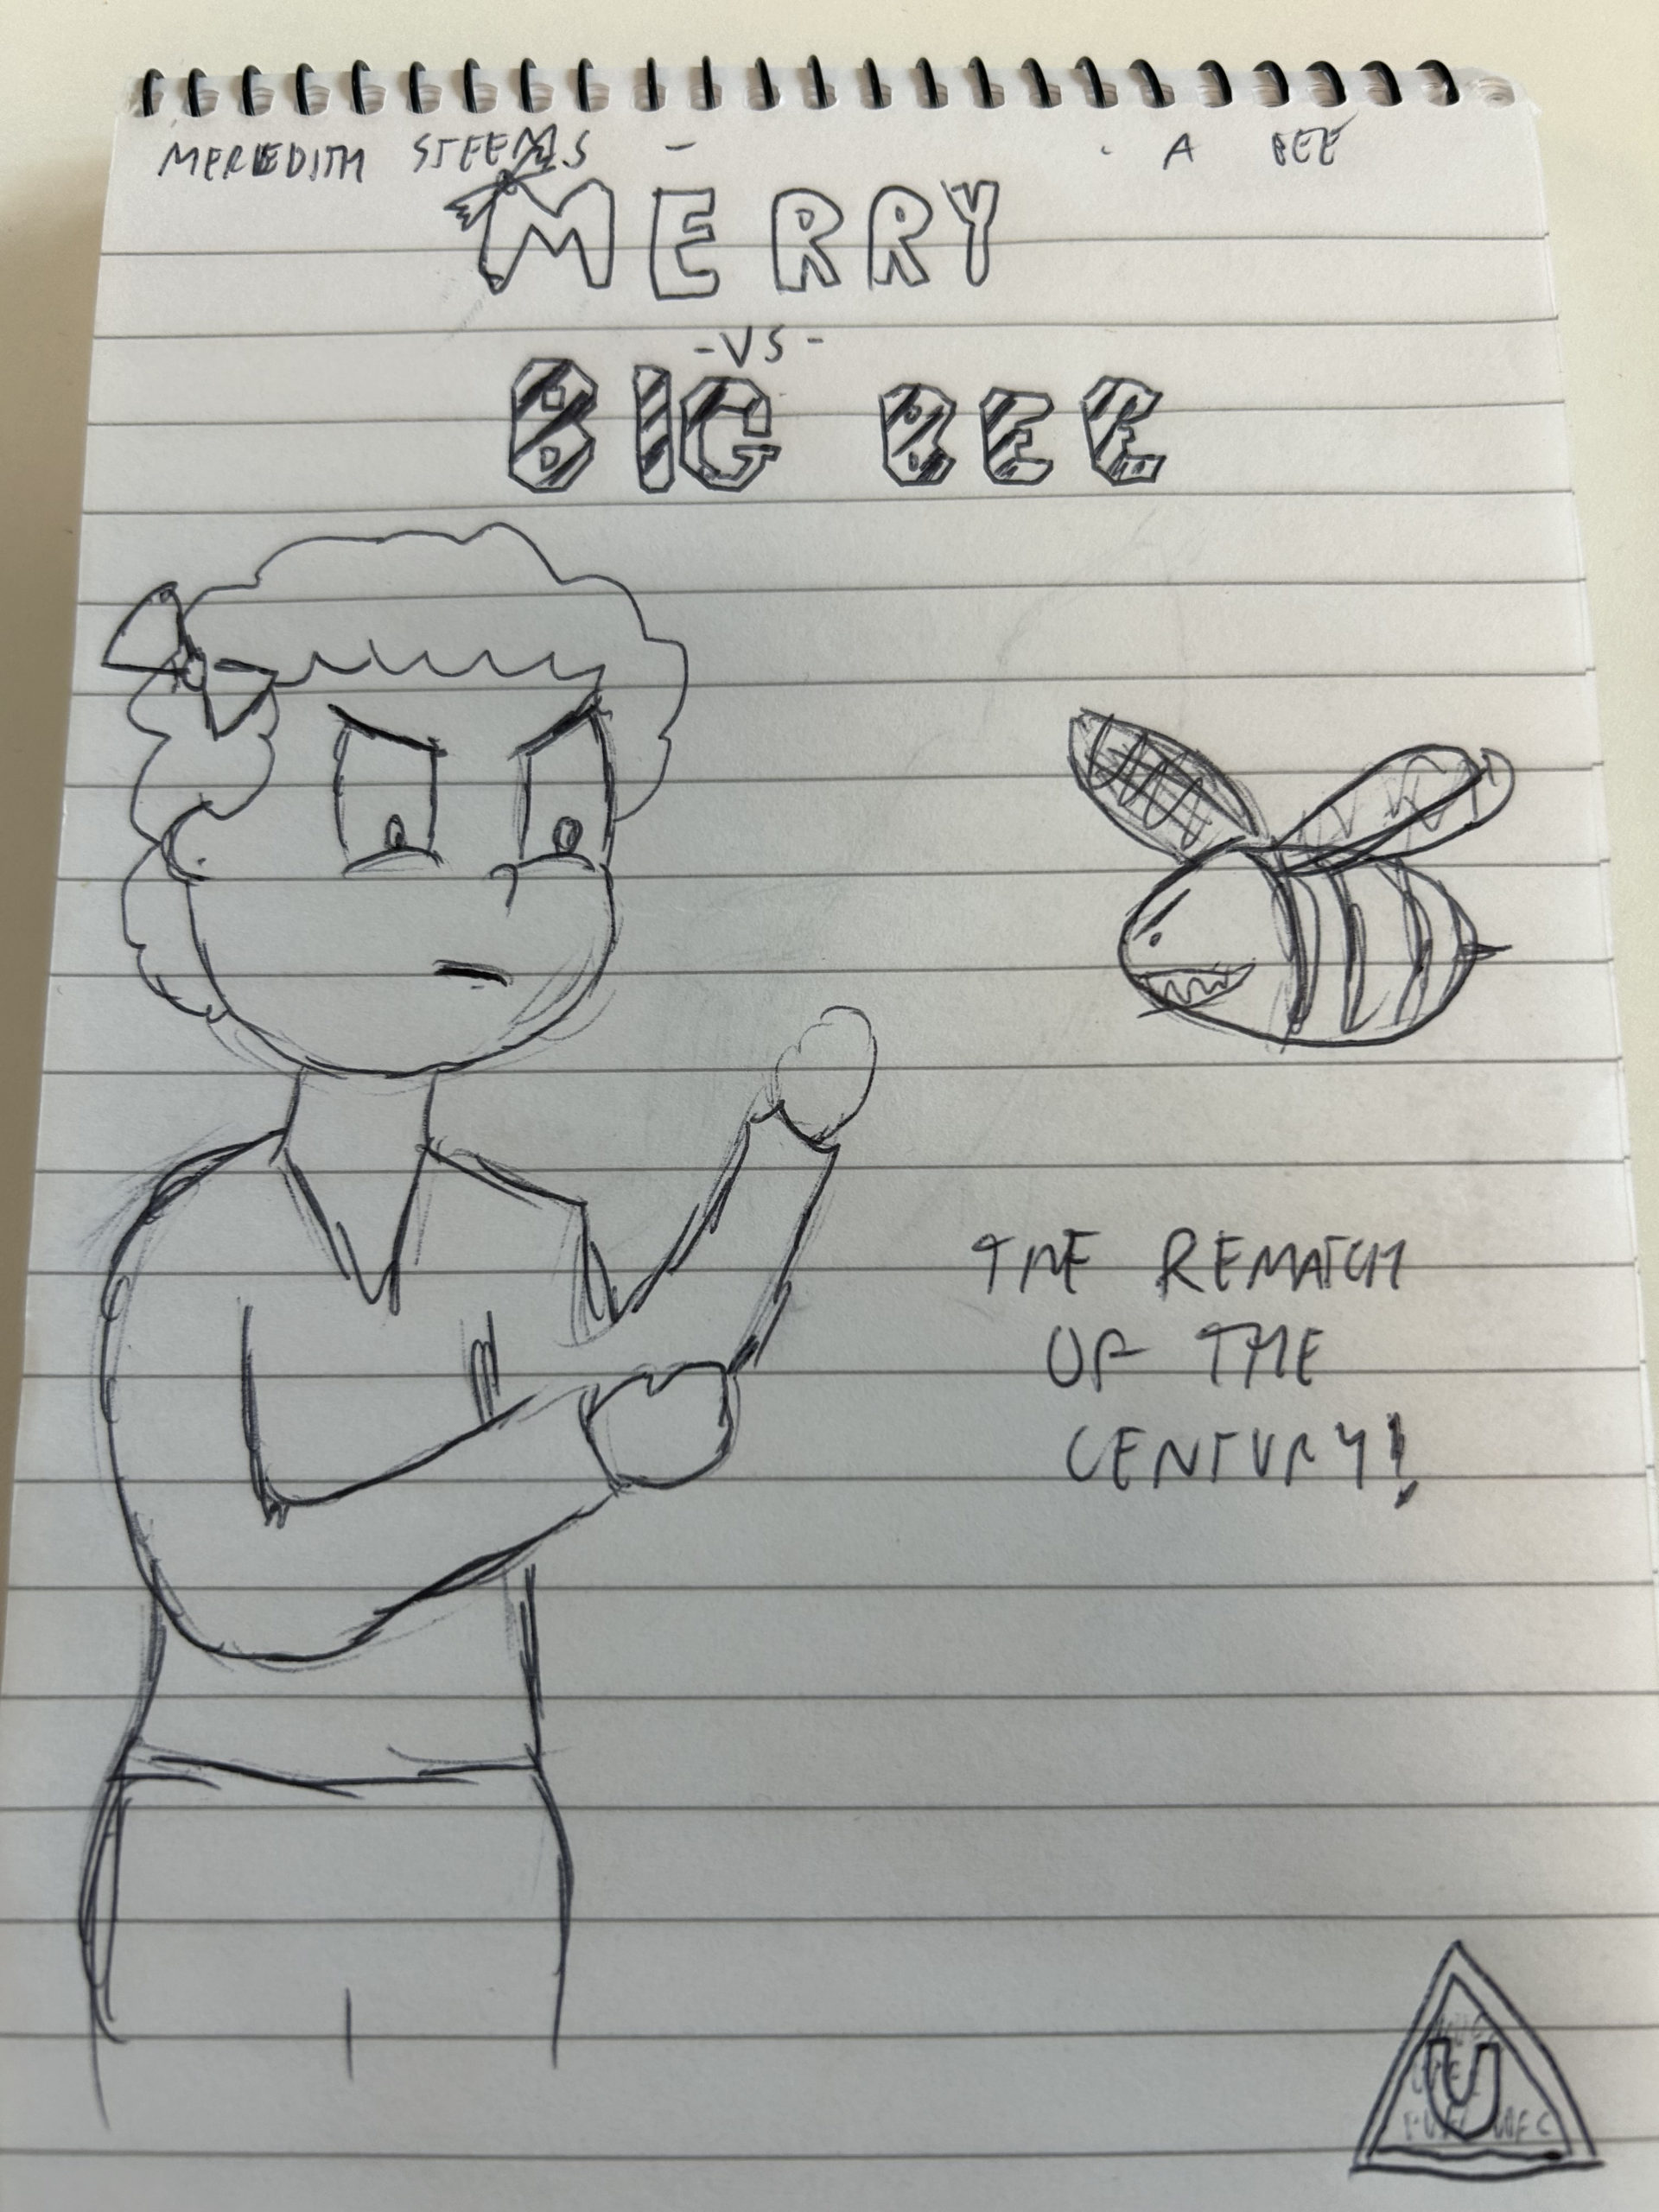 MEREDITH STEEMS - - A BEE
MERRY
-VS-
BIG BEE
THE REMATCH
OF THE
CENTURY!
U